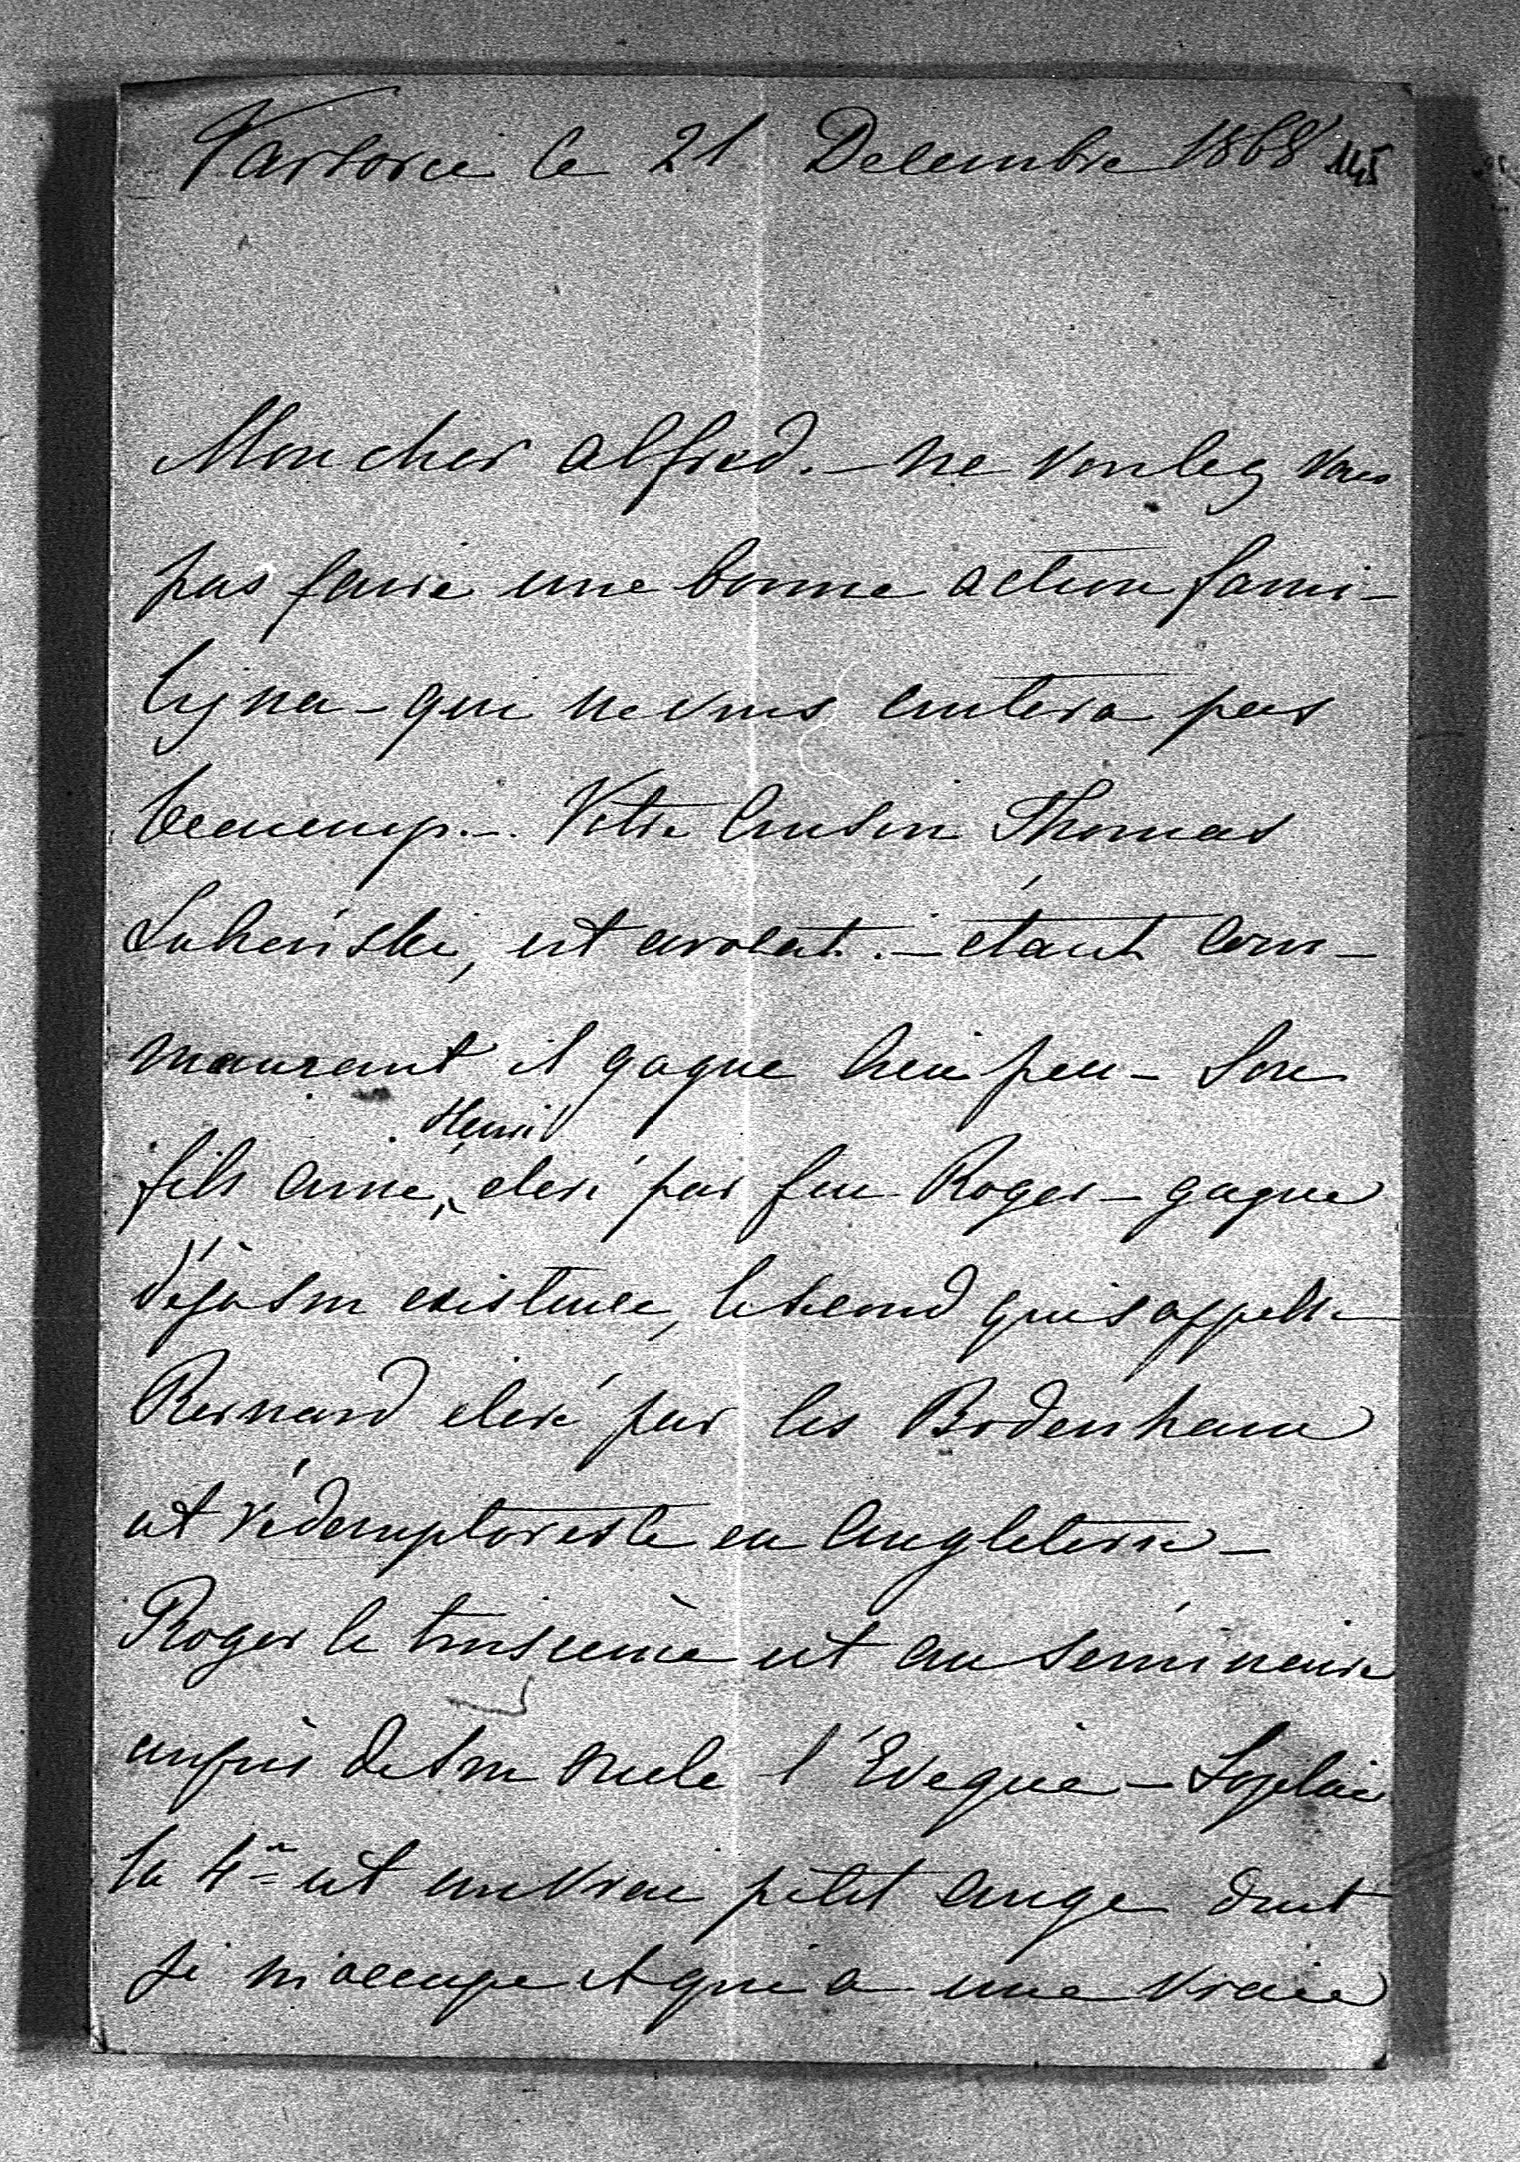 Varsovie le 21 Decembre 1868 145
Mon cher Alfred. – ne voulez vous
pas faire une bonne action fami-
lijna – qui ne vous coutera pas
beaucoup. – Votre Cousin Thomas
Łubieński, est avocat. – étant com-
mencant il gagne bien peu – Son
fils ainé, Henri elevé par feu Roger – gagne
déjà son existence, le second qui s'appelle
Bernard elevé par les Bodenham
est rédemptoriste en Angleterre –
Roger le troisième est au séminaire
auprès de son oncle l'Eveque – Sophie
la 4me est un vrai petit ange dont
je m'occupe et qui a une vraie